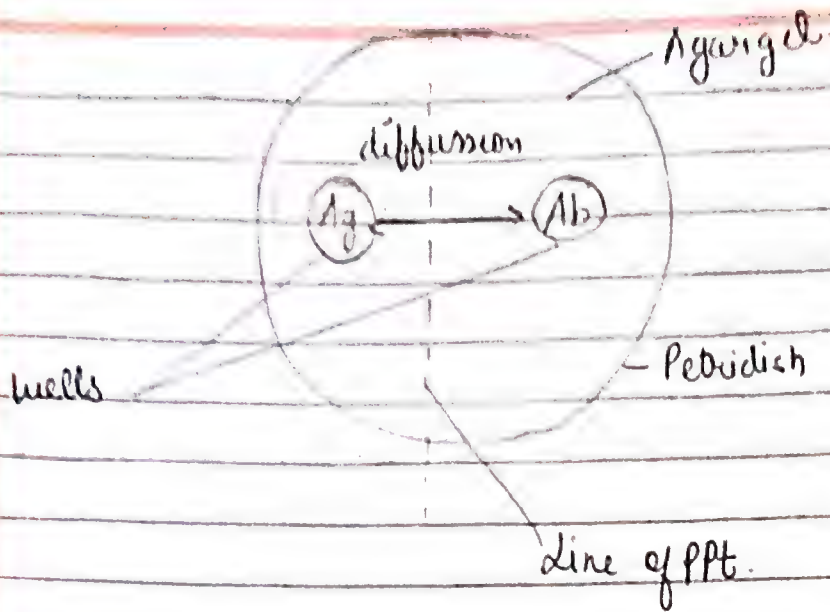 Agargel
diffussion
Ag
Ab
wells
Petridish
Line of PPt.